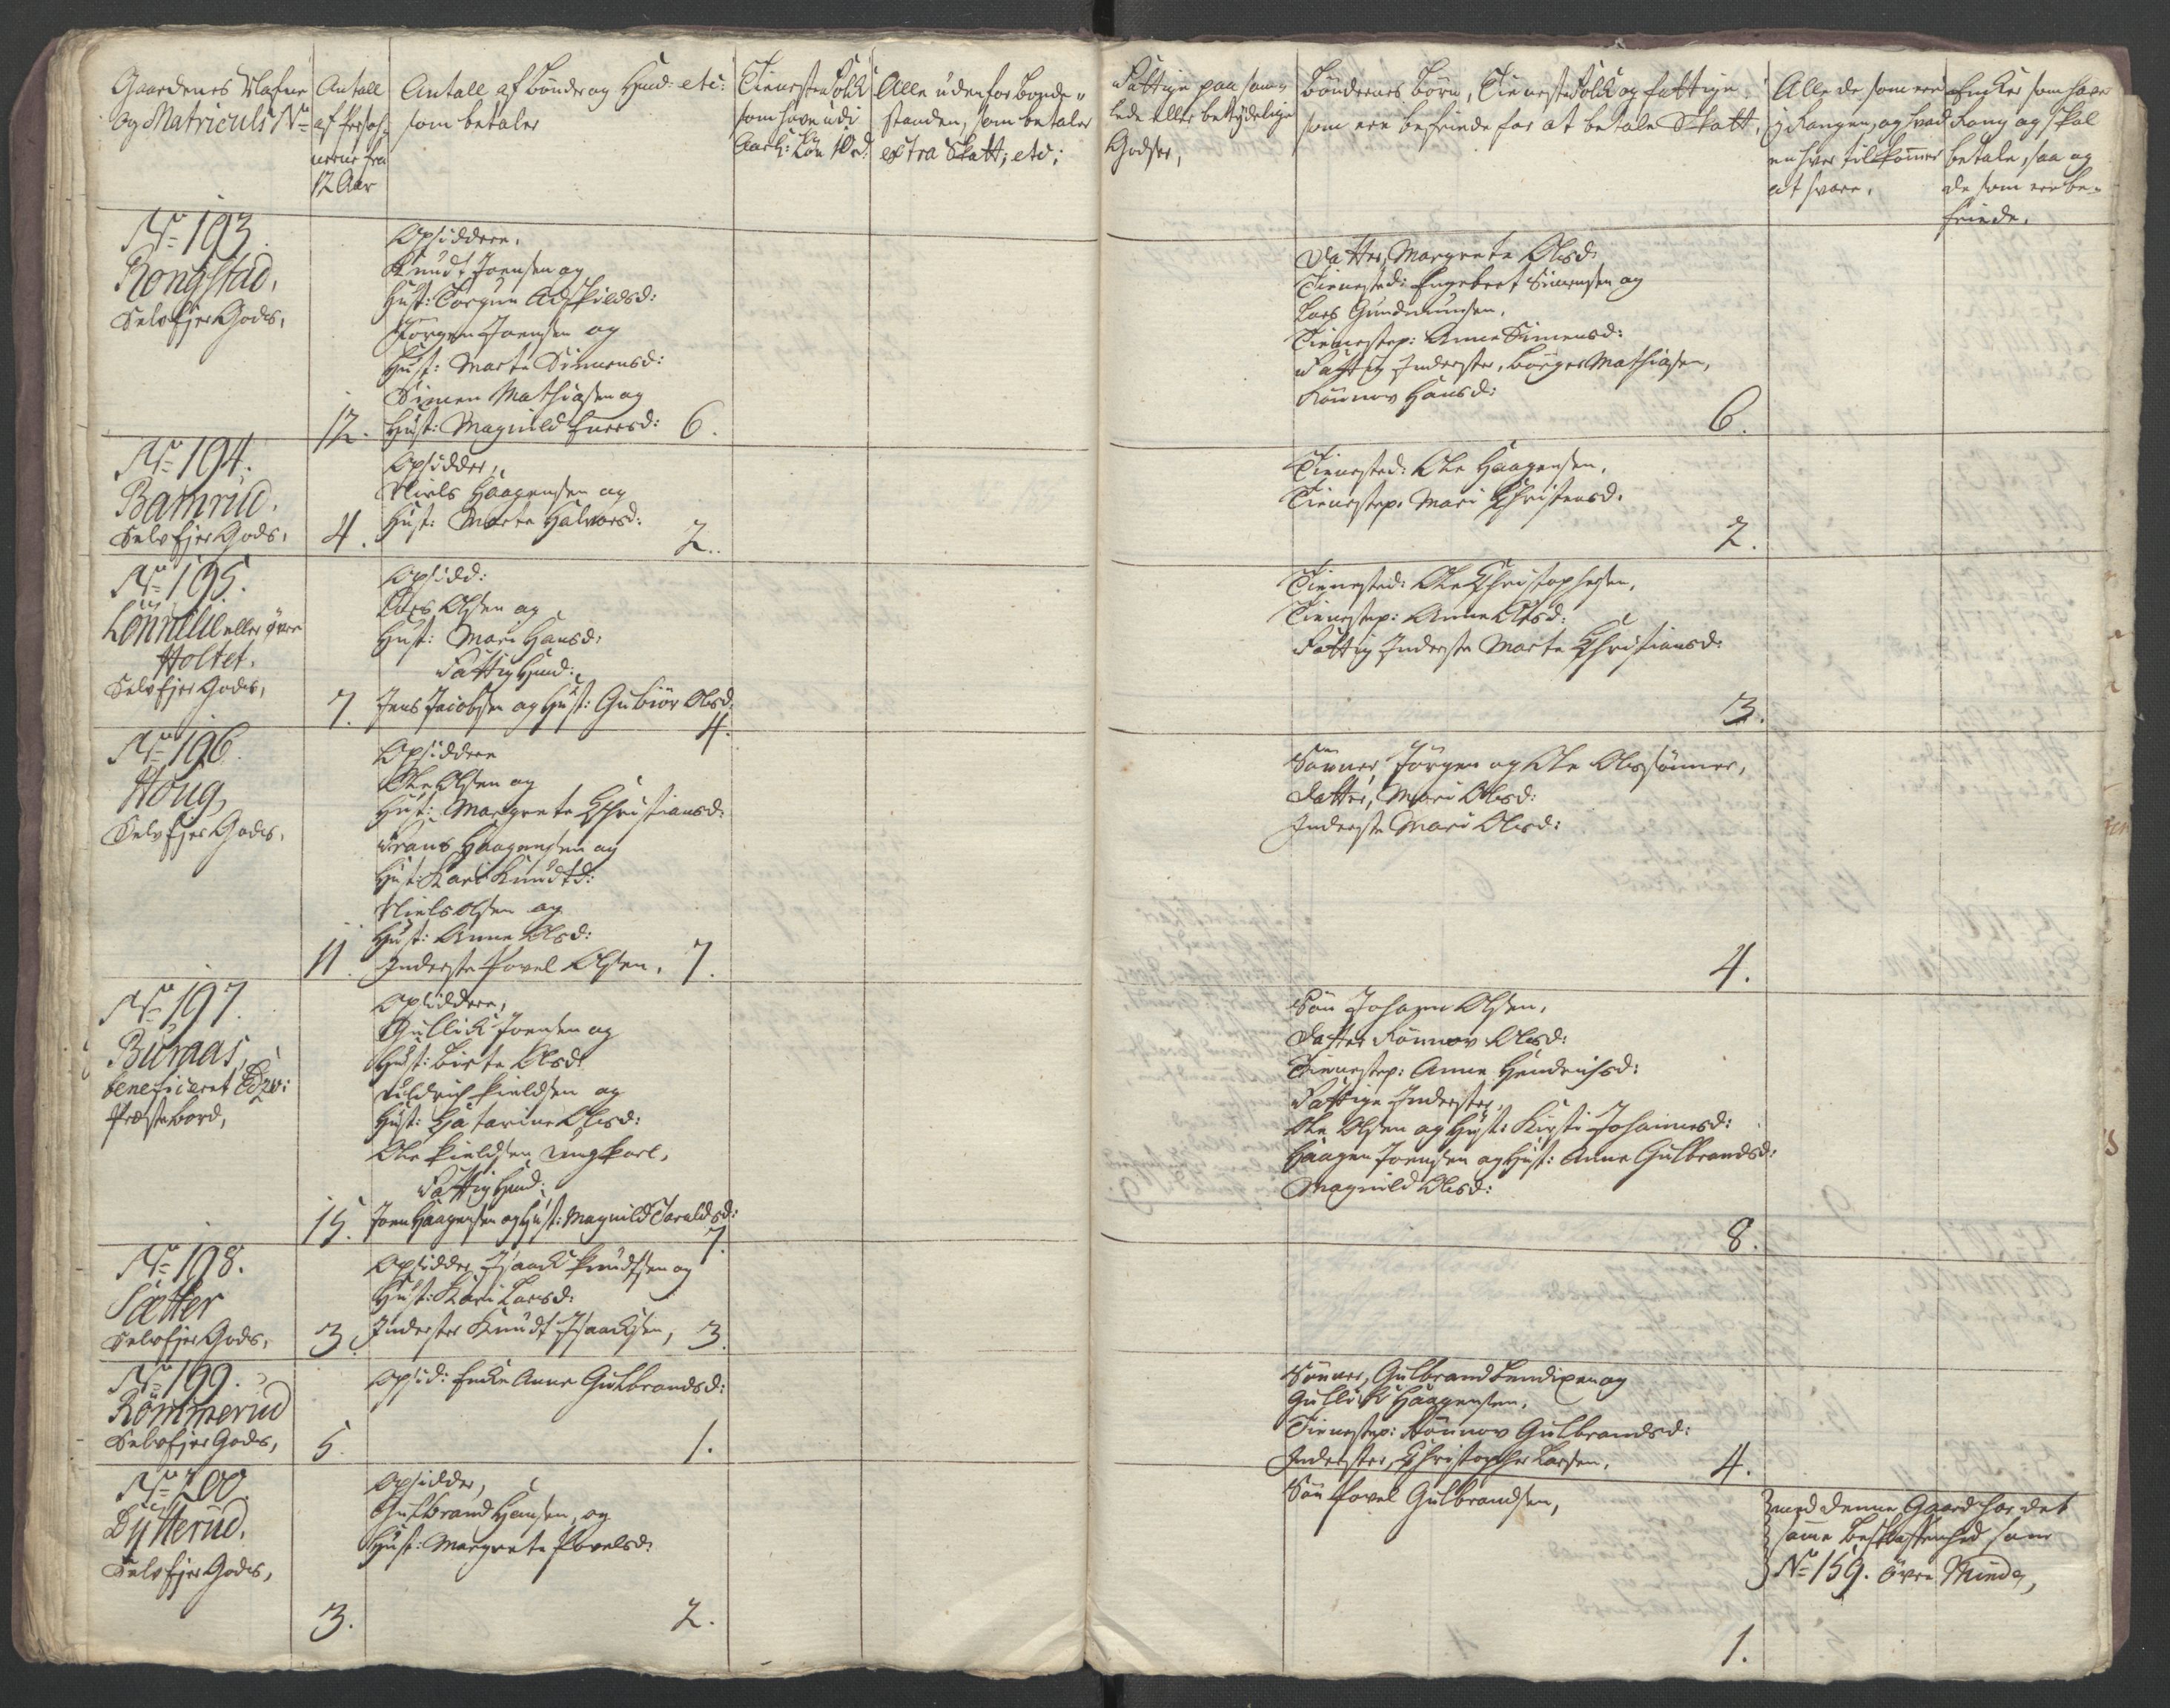 Gaardenes Nafne
og Matriculs No
Antall
af Persoh-
nerne fra
12 Aar
Antall af Bönder og Huusmd: etc:
som betaler
Tieneste Folck
som have udi
Aarl: Lön 10 rd:
Alle uden for Bonde-
standen, som betaler
extra Skatt; etc;
Fattige paa saa-
lede eller betydelige
Godser,
Böndernes Börn, Tieneste Folck og fattige
som ere befriede for at betale Skatt,
Alle de som ere
j Rangen, og hvad
en hver tilkommer
at svare.
Encker som have
Rang og skal
betale, saa og
de som ere be-
friede.
No 193.
Rongstad,
Selv Ejer Gods,
12.
Opsiddere,
Knudt Joensen og
Hust: Torgun Adskildsd:
Jörgen Joensen og
Hust: Marte Simensd:
Simen Mathiasen og
Hust: Magnild Enersd: 6.
Datter, Margrete Olsd:
Tienested: Engebret Simensen og
Lars Gundmunsen,
Tienestep: Anne Simensd:
Fattig Inderster, Börger Mathiasen,
Rönnov Hansd:
6.
No 194.
Bamrud.
Selv Ejer Gods,
4.
Opsidder,
Niels Haagensen og
Hust: Marte Halvorsd:
2.
Tienested: Ole Haagensen,
Tienestep: Mari Christensd:
2.
No 195.
Lönnelie eller övre
Holtet.
Selv Ejer Gods,
7.
Opsidd:
Lars Olsen og
Hust: Mari Hansd:
Fattig Husmd:
Jens Jacobsen og Hust: Gubiör Olsd:
4.
Tienested: Ole Christophersen,
Tienestep: Anne Olsd:
Fattig Inderste Marte Christiansd:
3.
No 196.
Houg,
Selv Ejer Gods,
11.
Opsiddere
Ole Olsen og
Hust: Margrete Christiansd:
Frans Haagensen og
Hust: Kari Knudtd:
Niels Olsen og
Hust: Anne Olsd:
Inderste Povel Olsen, 7.
Sönner, Jörgen og Ole Olssönner,
Datter, Mari Olsd:
Inderste Mari Olsd:
4.
No 197.
Buraas,
beneficeret
Prestebord,
15.
Opsiddere,
Gullick Joensen og
Hust: Birte Olsd:
Kieldsen og
Hust: Catarine Olsd:
Ole Kieldsen ungkarl,
Fattig Husmd:
Joen Haagensen og Hust: Magnild Taraldsd:
7.
Sön Johann Olsen,
Datter Rönnov Olsd:
Tienestep: Anne Hendrichsd:
Fattige Inderster,
Ole Olsen og Hust: Kirsti Johannesd:
Haagen Joensen og Hust: Anne Gulbrandsd:
Magnild Olsd:
8.
No 198.
Sætter
Selv Ejer Gods,
3.
Opsidder Isaach Knudtsen og
Hust: Kari Larsd:
Inderster Knudt Isaachsen, 3.
No 199.
Römmerud
Selv Ejer Gods,
5.
Opsid: Encke Anne Gulbrandsd:
1.
Sönner, Gulbrand Bendixen og
Gullick Haagensen,
Tienestep: Rönnov Gulbrandsd:
Inderster, Christopher Larsen, 4.
No 200.
Dytterud.
Selv Ejer Gods,
3.
Opsidder,
Gulbrand Hansen, og
Hust: Margrete Povelsd:
2.
Sön Povel Gulbrandsen,
1.
med denne Gaard har det
samme Beskaffenhed som
No 159. övre Minde,